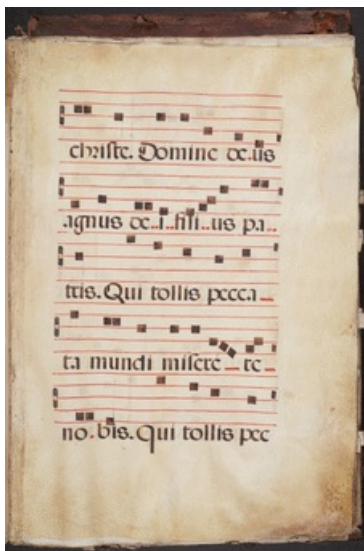 christe. Domine de.us
agnus de..i..fili..us pa..
tris. Qui tollis pecca_
ta mundi misere_re_
no.bis. Qui tollis pec